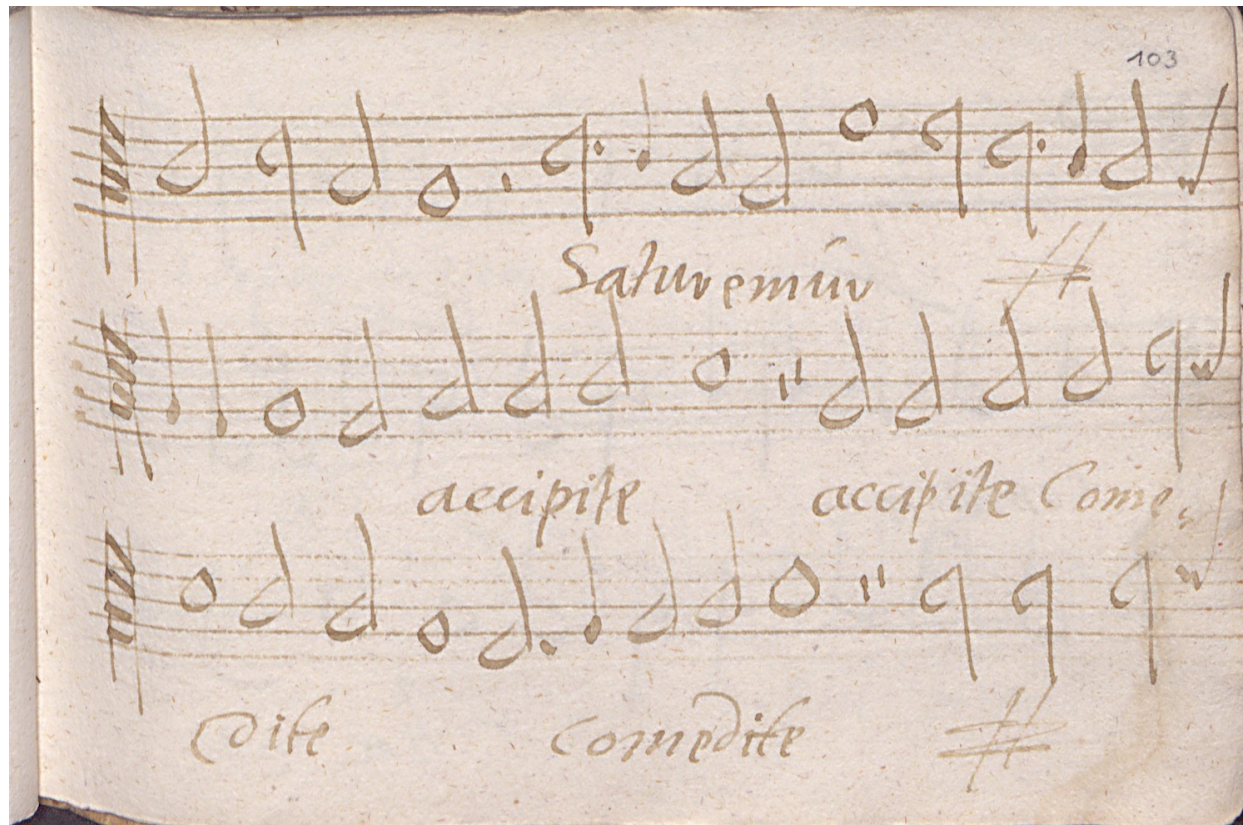 103
Saturemur #
accipite accipite Come
dite comedite #